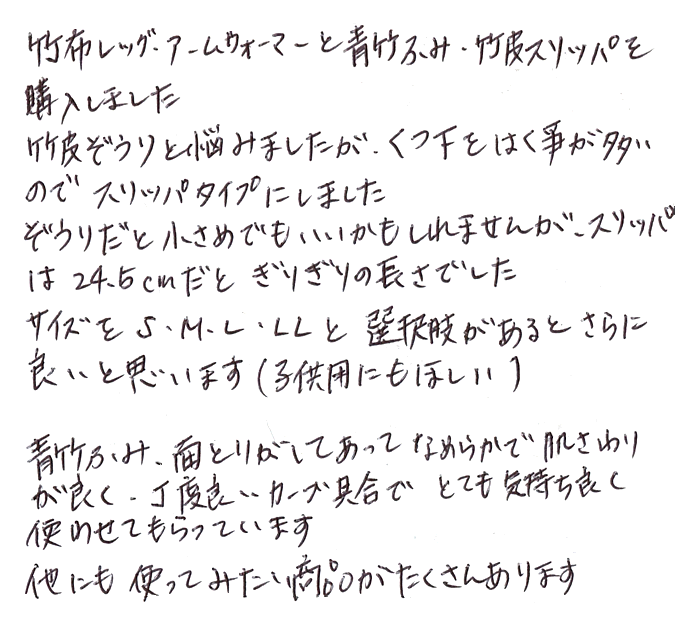 竹布レッグ・アームウォーマーと青竹ふみ・竹皮スリッパを
購入しました
竹皮ぞうりと悩みましたが、くつ下をはく事が多い
のでスリッパタイプにしました
ぞうりだと小さめでもいいかもしれませんが、スリッパ
は24.5cmだとぎりぎりの長さでした
サイズをS・M・L・LLと選択肢があるとさらに
良いと思います(子供用にもほしい)
青竹ふみ、面とりがしてあってなめらかで肌さわり
が良く、丁度良いカーブ具合でとても気持ち良く
使わせてもらっています
他にも使ってみたい商品がたくさんあります